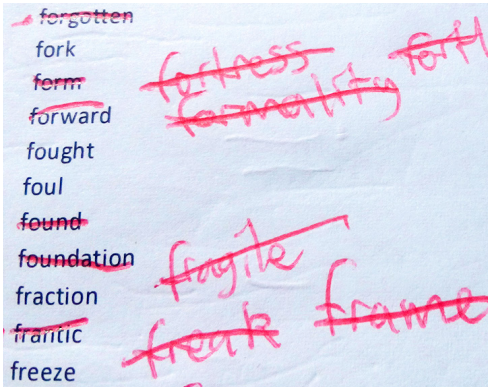 forgotten
fork
form
forward
fought
foul
found
foundation
fraction
frantic
freeze
fortress
formality
fragile
freak
frame